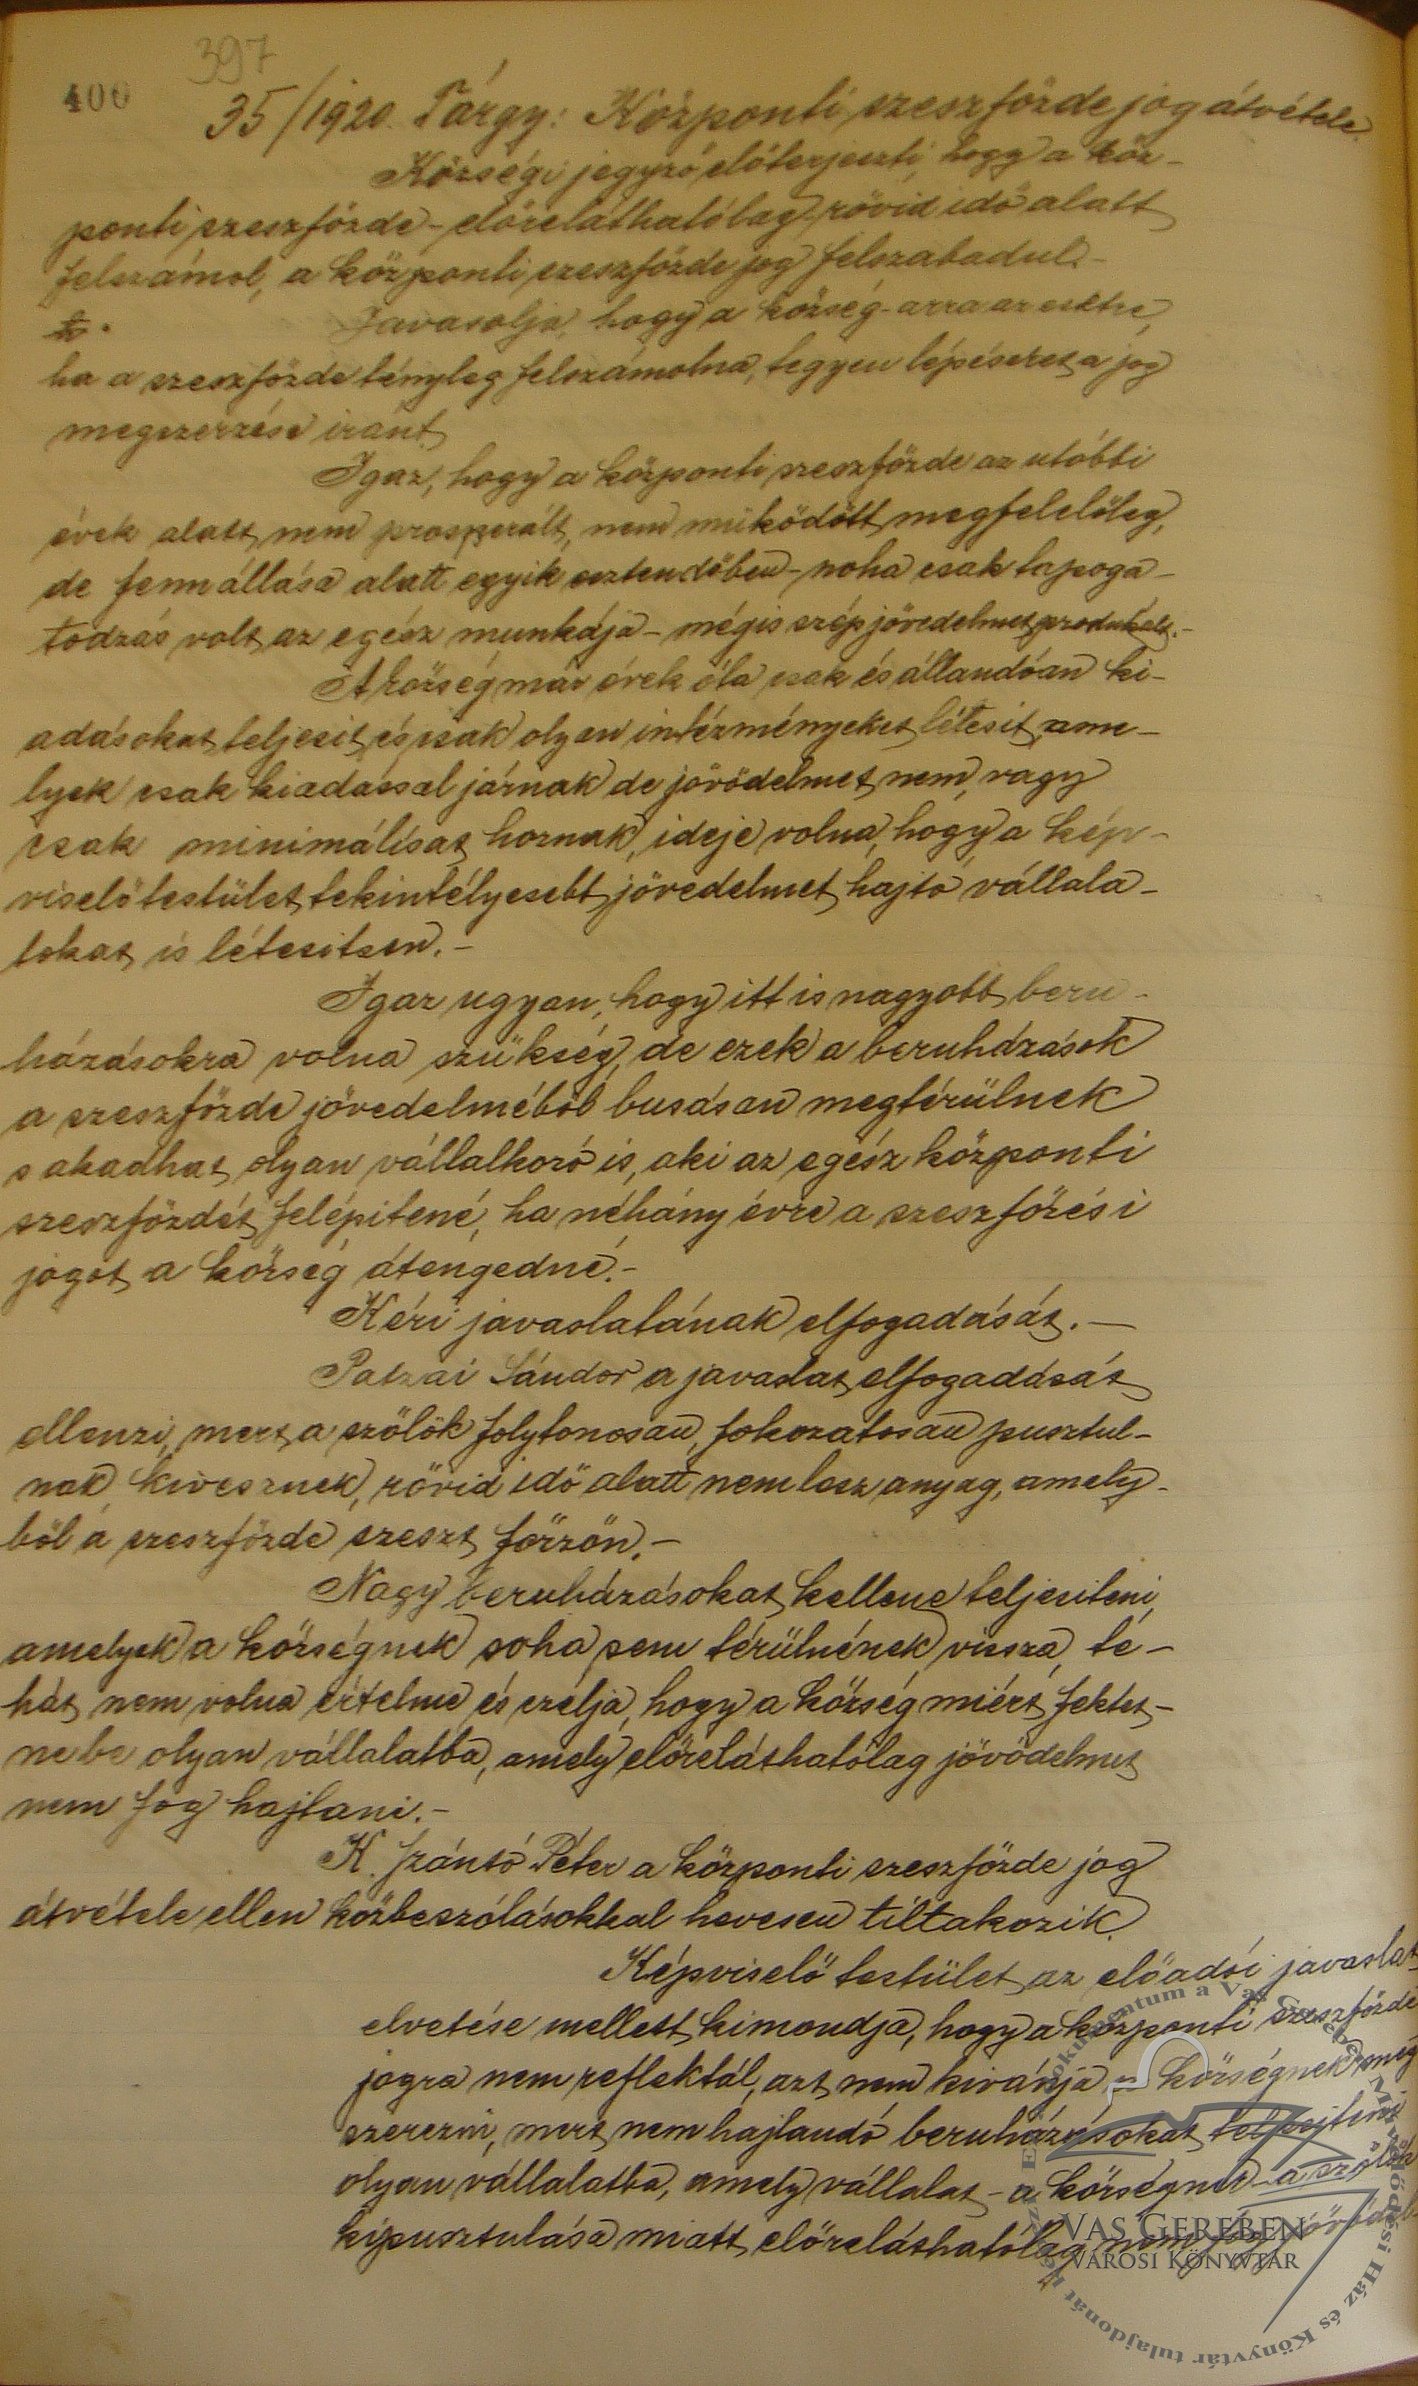 397
400
35/1920. Tárgy: Központi szeszfőzde jog átvétele
Községi jegyző előterjeszti, hogy a köz-
ponti szeszfőzde - előreláthatólag rövid idő alatt
felszámol, a központi szeszfőzde jog felszabadul. -
Javasolja, hogy a község arra az esetre,
ha a szeszfőzde tényleg felszámolna, tegyen lépéseket a jog
megszerzése iránt
Igaz, hogy a központi szeszfőzde az utóbbi
évek alatt nem prosperált, nem működött megfelelőleg,
de fennállása alatt egyik esztendőben - noha csak tapoga-
todzás volt az egész munkája - mégis szép jövedelmet produkált. -
A község már évek óta csak és állandóan ki-
adásokat teljesit, és csak olyan intézményeket létesit, ame-
lyek csak kiadással járnak de jövödelmet nem, vagy
csak minimálisat hoznak, ideje volna, hogy a kép-
viselőtestület tekintélyesebb jövedelmet hajtó vállala-
tokat is létesitsen. -
Igaz ugyan, hogy itt is nagyobb beru-
házásokra volna szükség, de ezek a beruházások
a szeszfőzde jövedelméből busásan megtérülnek
s akadhat olyan vállalkozó is, aki az egész központi
szeszfőzdét felépitené, ha néhány évre a szeszfőzési
jogot a község átengedné. -
Kéri javaslatának elfogadását. -
Patzai Sándor a javaslat elfogadását
ellenzi, mert a szőlők folytonosan, fokozatosan pusztul-
nak, kivesznek, rövid idő alatt nem lesz anyag, amely-
ből a szeszfőzde szeszt főzzön. -
Nagy beruházásokat kellene teljesiteni,
amelyek a községnek soha sem térülnének vissza, te-
hát nem volna értelme és czélja, hogy a község miért fektet-
ne be olyan vállalatba, amely előreláthatólag jövödelmet
nem fog hajtani. -
K. Szántó Péter a központi szeszfőzde jog
átvétele ellen közbeszólásokkal hevesen tiltakozik.
Képviselő testület az előadói javaslat
elvetése mellett kimondja, hogy a központi szeszfőzde
jogra nem reflektál, azt nem kivánja a községnek meg
szerezni, mert nem hajlandó beruházásokat teljesiteni
olyan vállalatba, amely vállalat - a községnek a szőlők
kipusztulása miatt előreláthatólag nem fog jövödel-
VAS GEREBEN
VÁROSI KÖNYVTÁR